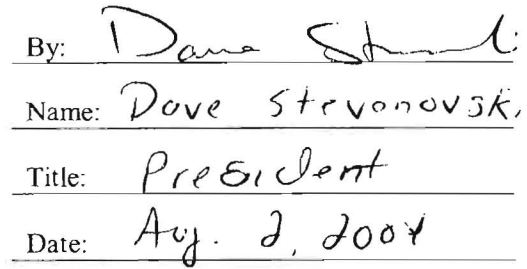 By: Dave Stevanovski
Name: Dave Stevanovski
Title: President
Date: Aug. 2, 2004